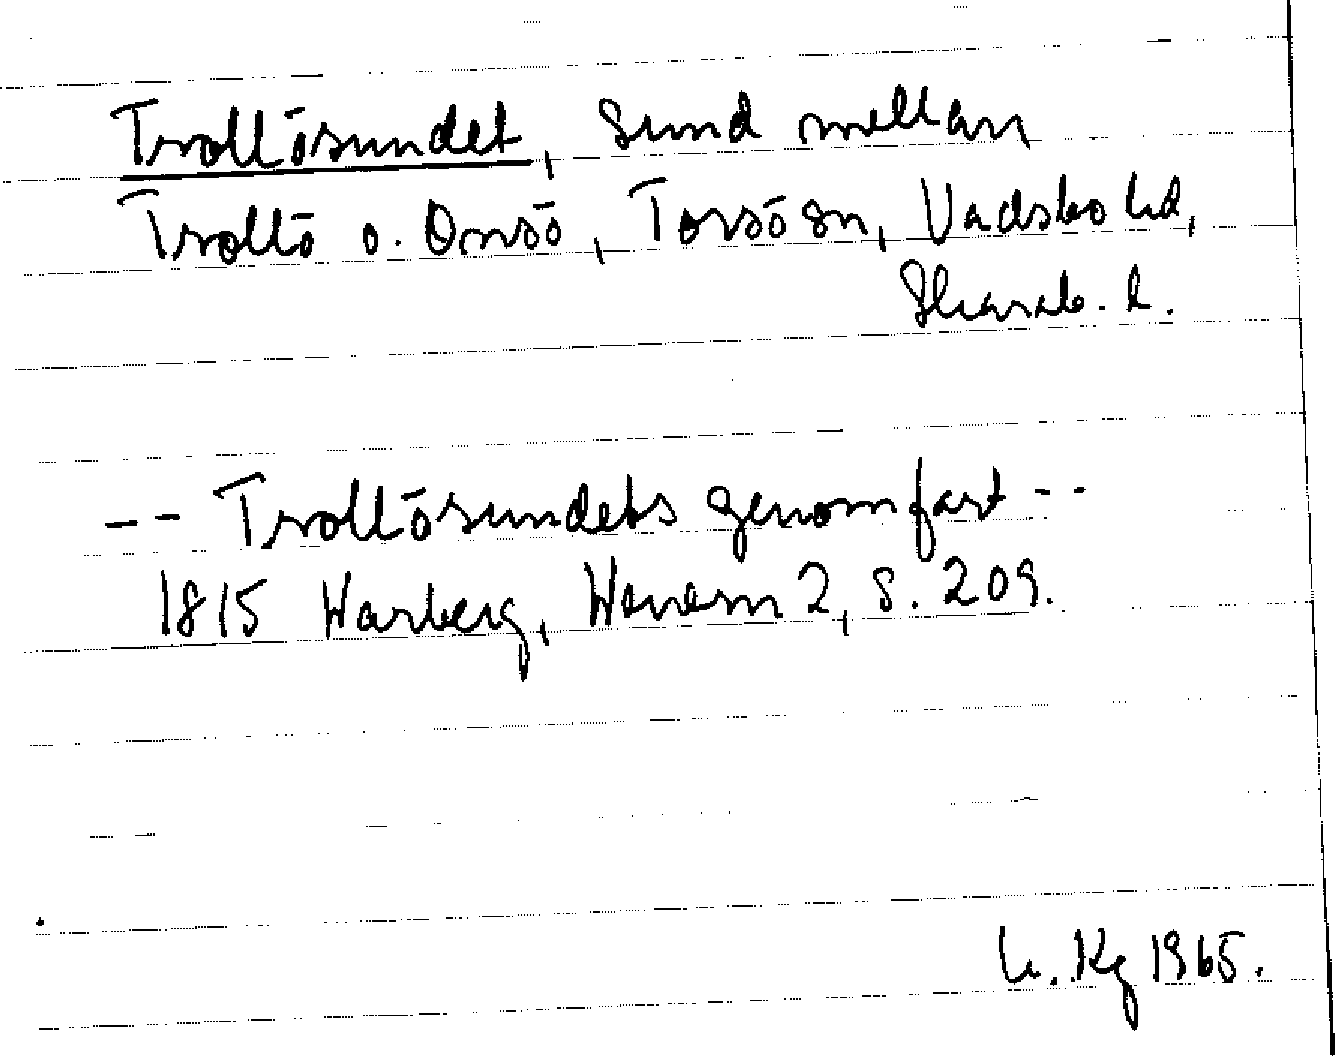 Trollösundet, sund mellan
Trollö o. Onsö, Torsö sn, Vadsbo hd,
Skarab. l.
-- Trollösundets genomfart --
1815 Warberg, Wenern 2, s. 209.
Kg 1965.